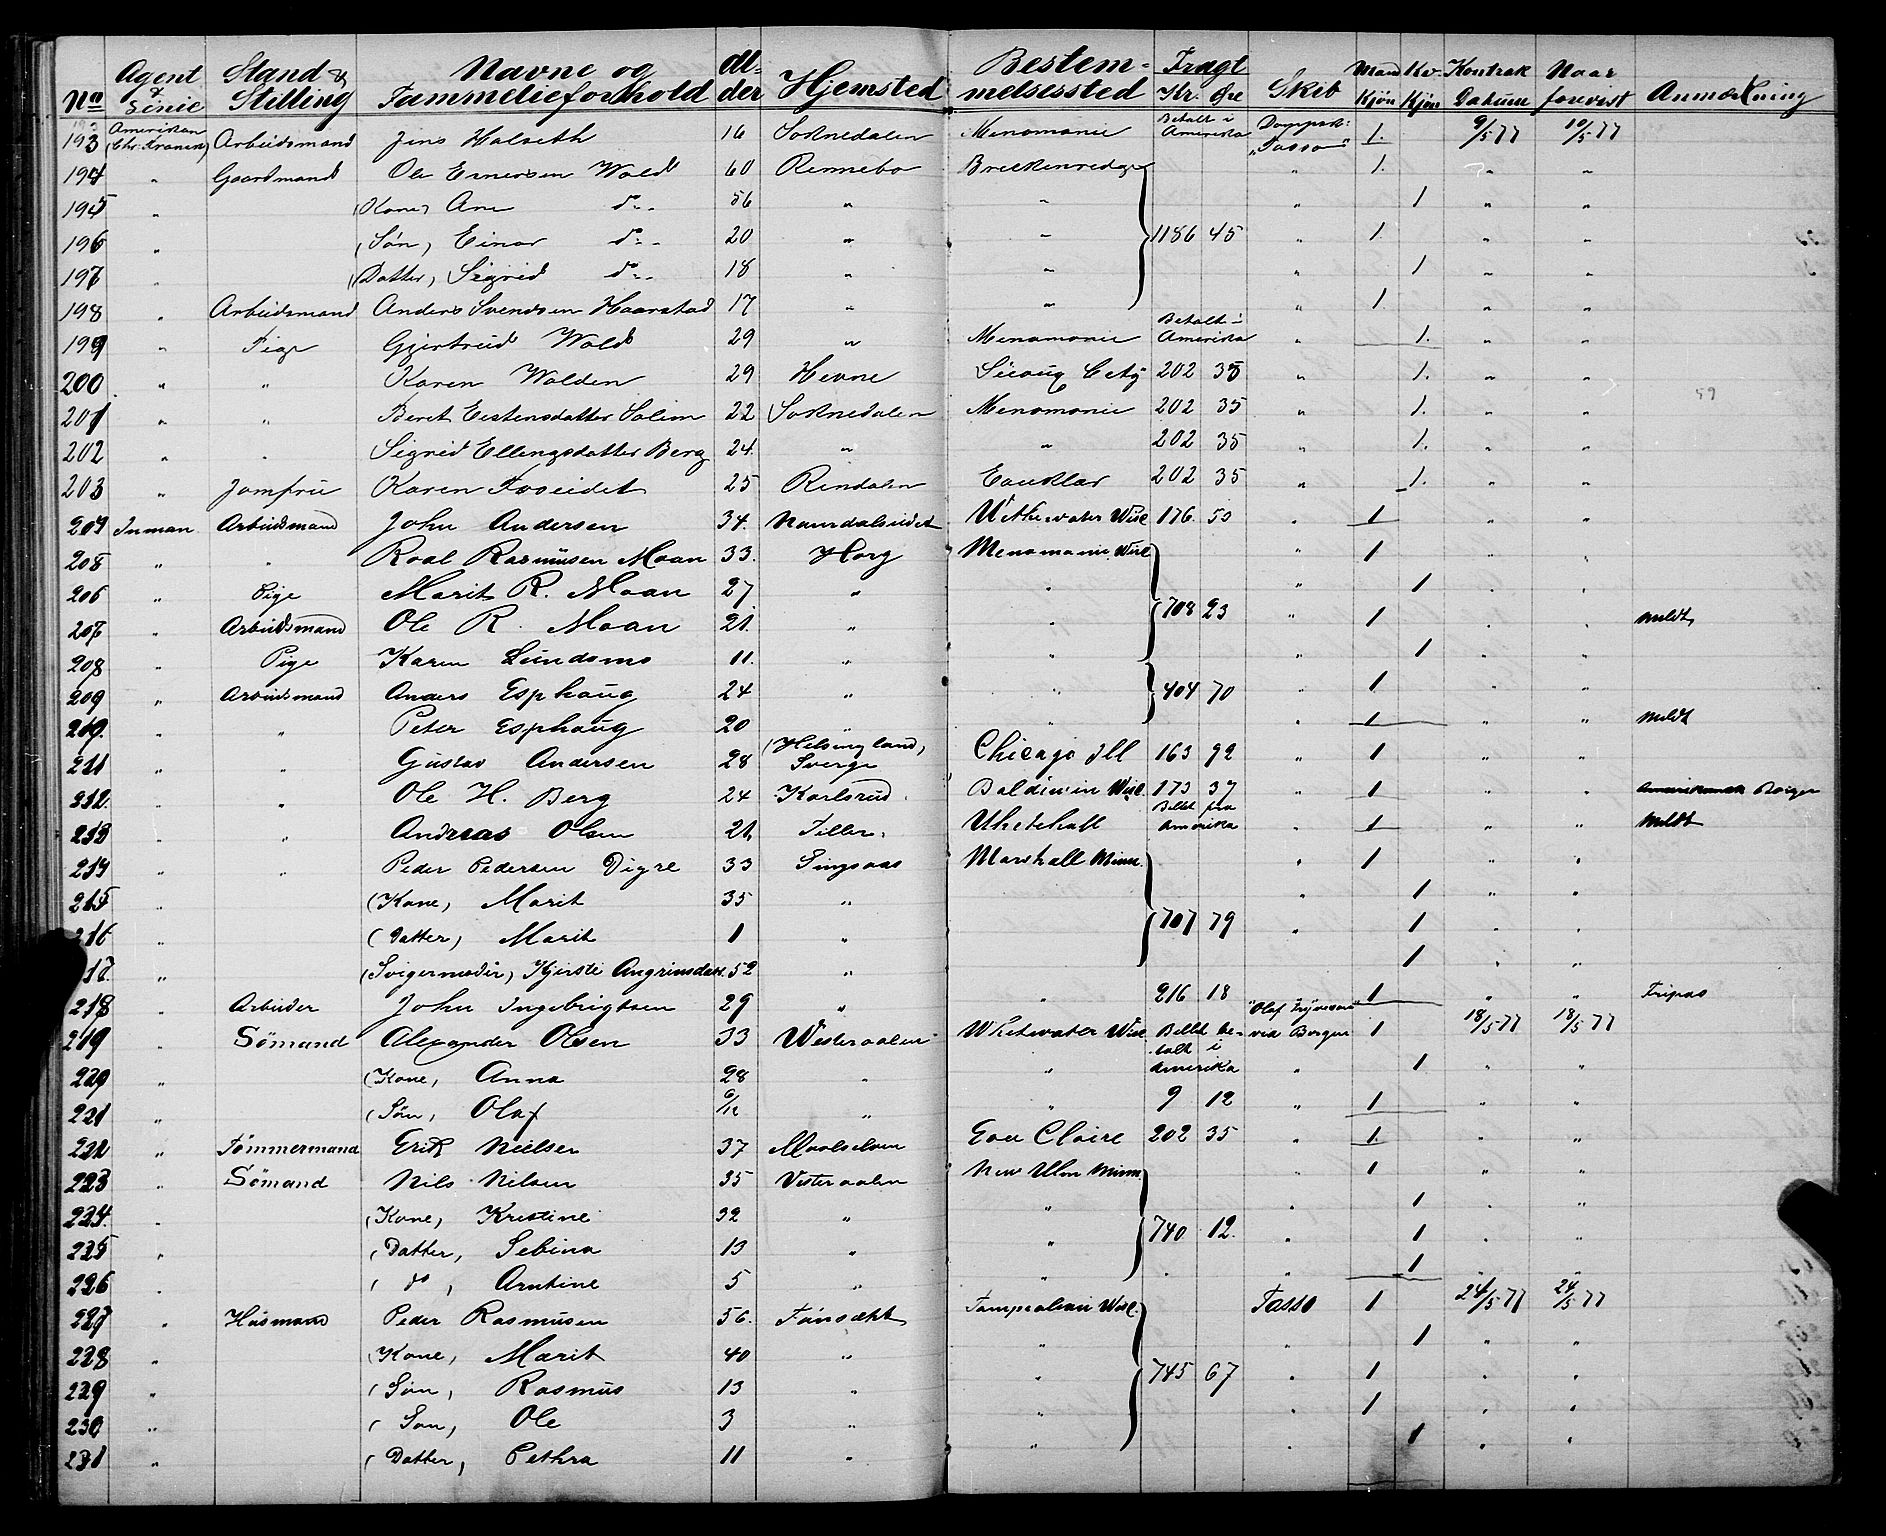 No Agent & Linie Stand & Stilling Navne og Fammelieforhold Alder Hjemsted Bestemmelsessted Fragt Kr. Øre Skib Mand Kjön Kv. Kjön Kontrak Datum Naar forevist Anmærkning
193 Amerikan (Chr. Kranen) Arbeidsmand Jens Halseth 16 Soknedalen Menomonie Betalt i Amerika Dampsk: "Tasso" 1. 9/5 77 10/5 77
194 " Gaardmand Ole Einersen Wold 60 Rennebo Breckenredge " 1. " "
195 " (Kone) Ane do 56 " " " 1 " "
196 " (Søn, Einar do 20 " " 1186 45 " 1. " "
197 " (Datter, Sigrid do 18 " " " 1 " "
198 " Arbeidsmand Anders Svendsen Haarstad 17 " " " 1 " "
199 " Pige Gjertrud Wold 29 " Menomonie Betalt i Amerika " 1. " "
200 " " Karen Wolden 29 Hevne Siouz City 202 35 " 1. " "
201 " " Beret Eestensdatter Solem 22 Soknedalen Menomonie 202 35 " 1. " "
202 " " Sigrid Ellengsdatter Berg 24. " " 202 35 " 1. " "
203 " Jomfru Karen Foseidet 25 Rindalen Eauklar 202 35 " 1. " "
204 Inman Arbeidsmand John Andersen 34. Namdalseidet Withewater Wisc 176. 50 " 1 " "
205 " " Roal Rasmusen Moan 33. Horg Menomonie Wisc " 1 " "
206 " Pige Marit R. Moan 27 " " " 1 " "
207 " Arbeidsmand Ole R. Moan 21. " " 708 23 " 1 " " meldt
208 " Pige Karen Lundsmo 11. " " " 1 " "
209 " Arbeidsmand Anders Esphaug 24 " " 404 70 " 1 " "
210. " " Peter Esphaug 20 " " " 1 " " meldt
211 " " Gustav Andersen 28 (Helsingland, Sverge Chicago Ill 163 92 " 1 " "
212. " " Ole H. Berg 24 Karlsrud Baldiwin Wisc. 173 37 " 1 " " Borger
213 " " Andreas Olsen 21 Tiller Whitehall Billet fra Amerika " 1 " " meldt
214 " " Peder Pedersen Digre 33 Singsaas Marshall Minn. " 1 " "
215 " (Kone, Marit 35 " " 1 " "
216 " (Datter, Marit 1 " 707 79 " 1 " "
217 " (Svigermoder, Kjersti Angrimsdatt. 52 " 1 " "
218 " Arbeider John Ingebrigtsen 29 " " 216 18 1 " "
219 " Sömand Alexander Olsen 33 Westeraalen Whitewater Wisc Billet betalt i Amerika "Olaf Trygvesen" via Bergen 1 18/5 77 18/5 77
220 " (Kone, Anna 28 " " " 1 " "
221 " (Søn, Olaf 6/12 " " 9 12 " 1 " "
222 " Tömmermand Erik Nielsen 37 Maalselven Eau Claire 202 35 " 1. " "
223 " Sömand Nils Nilsen 35 Vesteraalen New Ulm Minn. " 1 " "
224. " (Kone, Kristine 32 " " " 1 " "
225 " (Datter, Sebina 13 " " 740 12. " 1 " "
226 " (do, Arntine 5 " " " 1 " "
227 " Husmand Peder Rasmusen 56. Tönsæth Wisc. Tasso 1 24/5 77 24/5 77
228 " (Kone, Marit 40 " " " 1 " "
229 " (Søn, Rasmus 13 " " 745 67 " 1 " "
230 " (Søn, Ole 3 " " " 1 " "
231 " (Datter, Pethra 11 " " " 1 " "